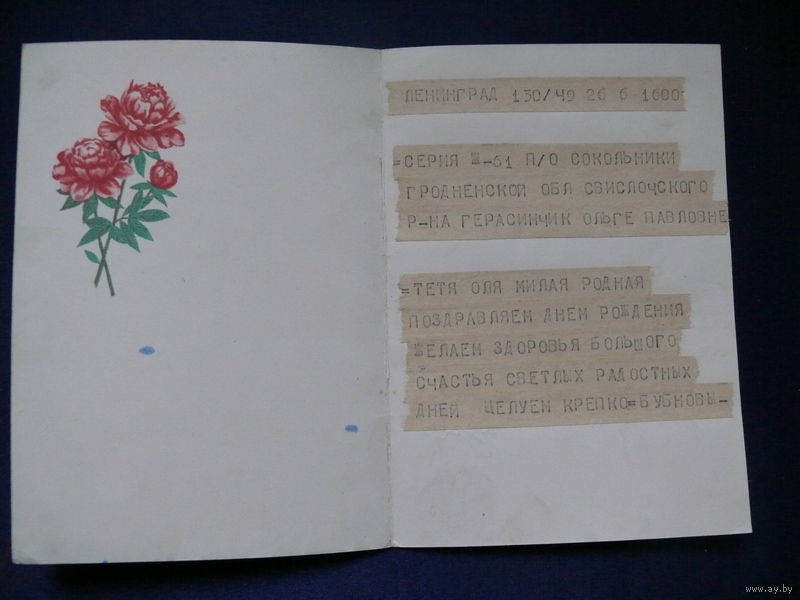 ЛЕНИНГРАД 130/49 26 6 1600
=СЕРИЯ Ш-61 П/О СОКОЛЬНИКИ
ГРОДНЕНСКОЙ ОБЛ СВИСЛОЧСКОГО
Р-НА ГЕРАСИМЧИК ОЛЬГЕ ПАВЛОВНЕ
=ТЕТЯ ОЛЯ МИЛАЯ РОДНАЯ
ПОЗДРАВЛЯЕМ ДНЕМ РОЖДЕНИЯ
ЖЕЛАЕМ ЗДОРОВЬЯ БОЛЬШОГО
СЧАСТЬЯ СВЕТЛЫХ РАДОСТНЫХ
ДНЕЙ ЦЕЛУЕМ КРЕПКО=БУБНОВЫ-
www.ay.by